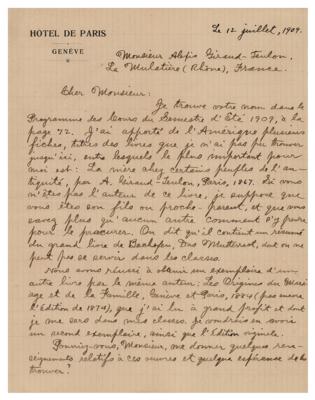 HOTEL DE PARIS
GENÈVE
Le 12 juillet, 1909.
Monsieur Alexis Giraud-Teulon,
La Mulatière (Rhône), France.
Cher Monsieur:
Je trouve votre nom dans le
Programme des Cours du Semestre d'Été 1909, à la
page 72. J'ai apporté de l'Amérique plusieurs
fiches, titres des livres que je n'ai pas pu trouver
jusqu'ici, entre lesquels le plus important pour
moi est: La mère chez certains peuples de l'an-
tiquité, par A. Giraud-Teulon, Paris, 1867. Si vous
n'êtes pas l'auteur de ce livre, je suppose que
vous êtes son fils ou proche-parent, et que vous
savez plus qu'aucun autre comment s'y prendre
pour le procurer. On dit qu'il contient un résumé
du grand livre de Bachofen, Das Mutterrecht, dont on ne
peut pas se servir dans les classes.
Nous avons réussi à obtenir un exemplaire d'un
autre livre par le même auteur: Les Origines du Mari-
age et de la Famille, Genève et Paris, 1884 (pas encore
l'Edition de 1874), que j'ai lu à grand profit et dont
je me sers dans mes classes. Je voudrais en avoir
un second exemplaire, ainsi que l'Edition originale.
Pourriez-vous, Monsieur, me donner quelques ren-
seignements relatifs à ces œuvres et quelque espérance de les
trouver?